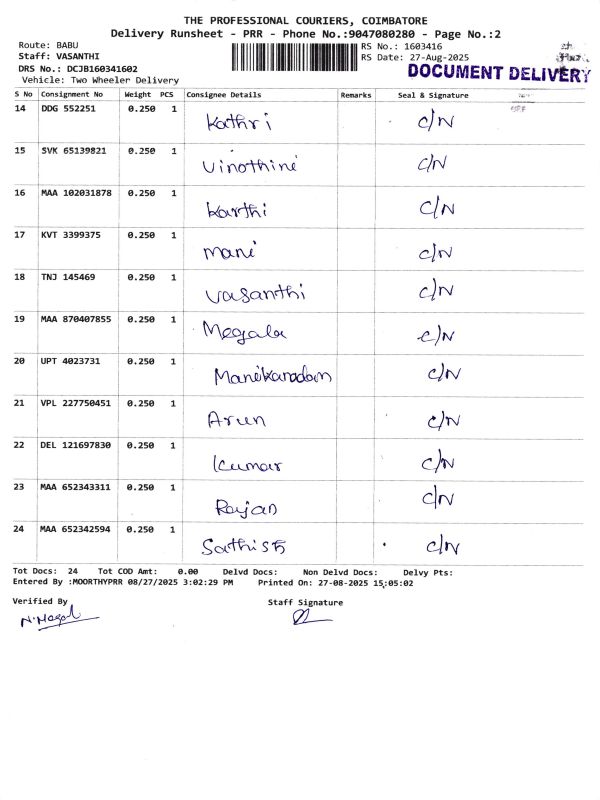 THE PROFESSIONAL COURIERS, COIMBATORE
Delivery Runsheet - PRR - Phone No.:9047080280 - Page No.:2
Route: BABU
Staff: VASANTHI
DRS No.: DCJB160341602
Vehicle: Two Wheeler Delivery
RS No.: 1603416
RS Date: 27-Aug-2025
DOCUMENT DELIVERY
S No Consignment No Weight PCS Consignee Details Remarks Seal & Signature
14 DDG 552251 0.250 1 Kathri C/N
15 SVK 65139821 0.250 1 Vinothini C/N
16 MAA 102031878 0.250 1 Karthi C/N
17 KVT 3399375 0.250 1 Mani C/N
18 TNJ 145469 0.250 1 Vasanthi C/N
19 MAA 870407855 0.250 1 Megala C/N
20 UPT 4023731 0.250 1 Manikandan C/N
21 VPL 227750451 0.250 1 Arun C/N
22 DEL 121697830 0.250 1 Kumar C/N
23 MAA 652343311 0.250 1 Rajan C/N
24 MAA 652342594 0.250 1 Sathish C/N
Tot Docs: 24 Tot COD Amt: 0.00 Delvd Docs: Non Delvd Docs: Delvy Pts:
Entered By :MOORTHYPRR 08/27/2025 3:02:29 PM Printed On: 27-08-2025 15:05:02
Verified By Staff Signature